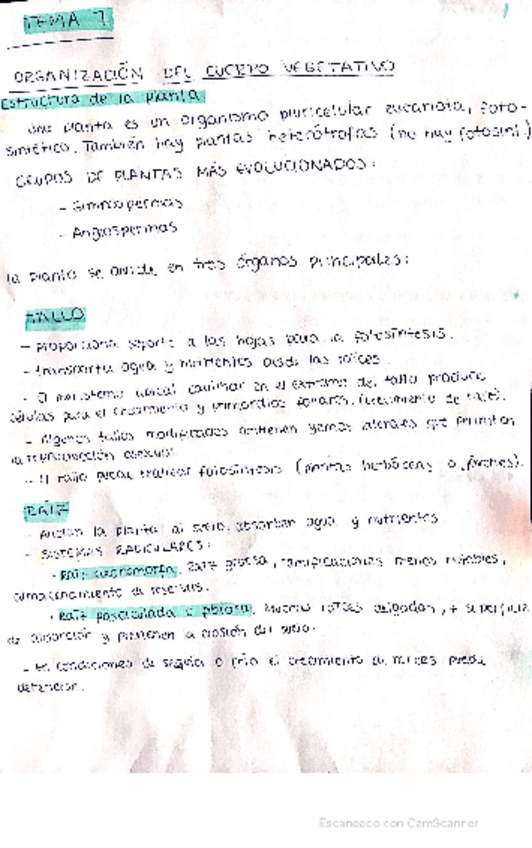 TEMA 7
1
ORGANIZACIÓN DEL CUERPO VEGETATIVO
Estructura de la planta
Una planta es un organismo pluricelular eucariota, foto-
sintético. También hay plantas heterótrofas (no hay fotosint.)
GRUPOS DE PLANTAS MÁS EVOLUCIONADOS:
- Gimnospermas
- Angiospermas
la planta se divide en tres órganos principales:
TALLO
- Proporciona soporte a las hojas para la fotosíntesis.
- transporta agua y nutrientes desde las raíces.
- El meristemo apical caulinar en el extremo del tallo produce
células para el crecimiento y primordios foliares. (crecimiento de
- Algunos tallos modificados contienen yemas laterales que permiten
la reproducción asexual.
- El tallo puede realizar fotosíntesis (plantas herbáceas o jóvenes).
RAÍZ
- Anclan la planta al suelo, absorben agua y nutrientes
- SISTEMAS RADICULARES:
· Raíz axonomorfa. Raíz gruesa, ramificaciones menos notables,
almacenamiento de reservas.
· Raíz fasciculada o fibrosa. Muchas raíces delgadas, + superficie
de absorción y previenen la erosión del suelo.
- En condiciones de sequía o frío el crecimiento de raíces puede
detenerse.
Escaneado con CamScanner